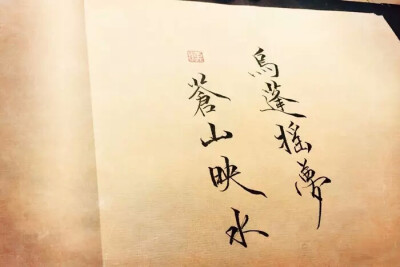 烏蓬摇夢
蒼山映水